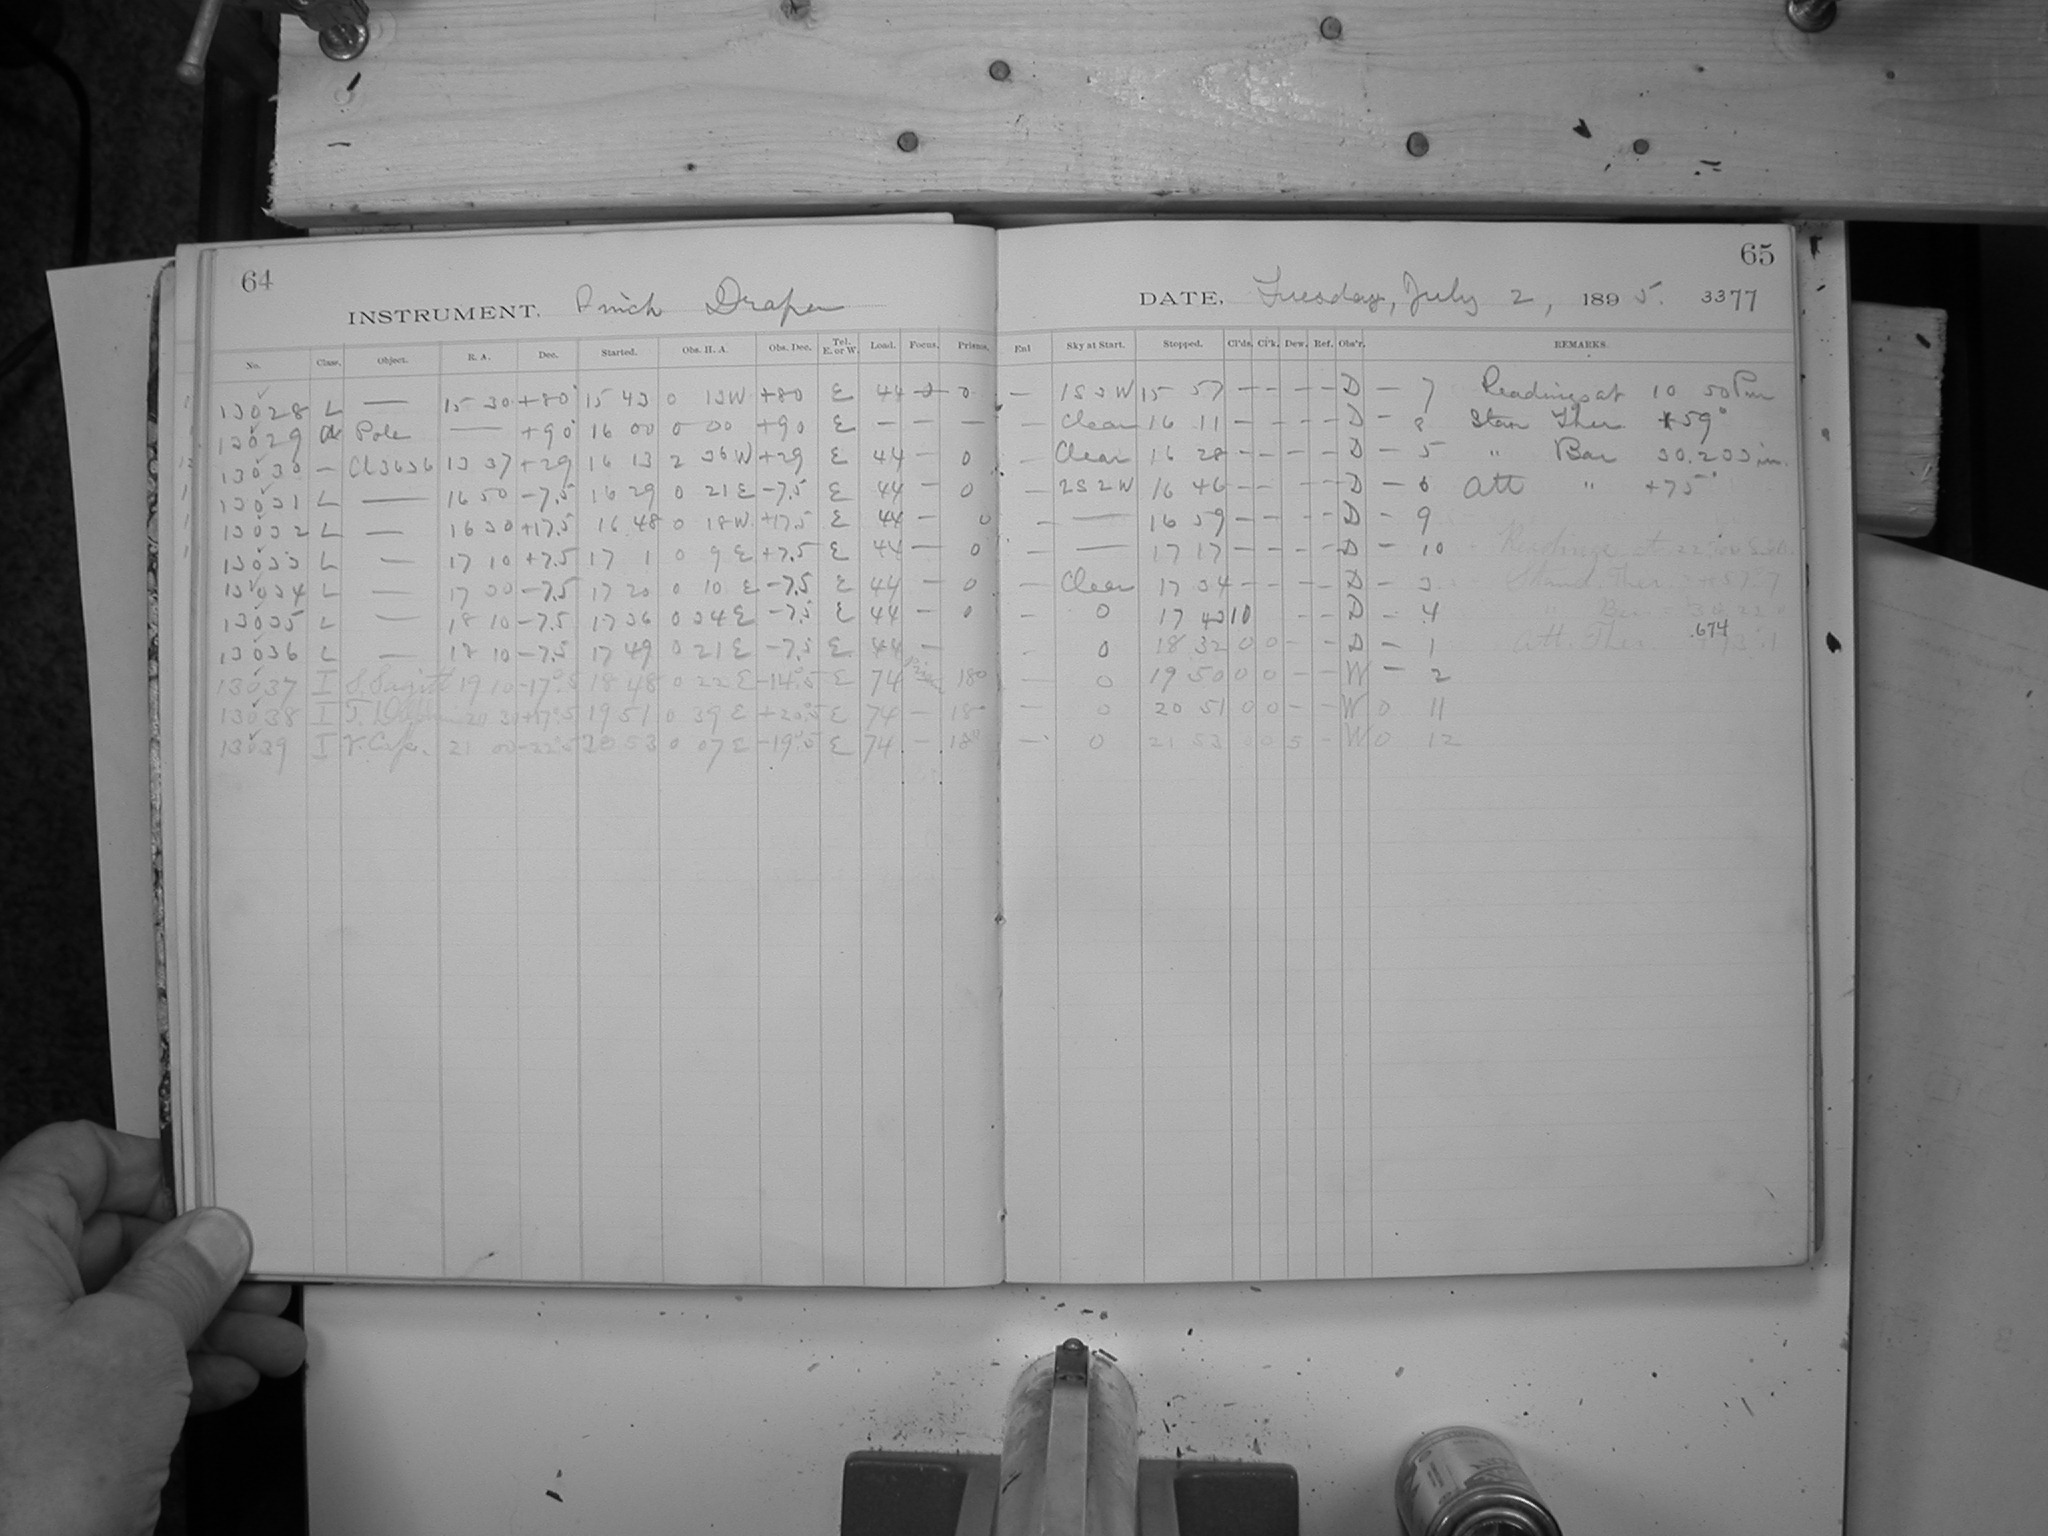 64
INSTRUMENT. 8 inch Draper
No. Class. Object. R. A. Dec. Started. Obs. H. A. Obs. Dec. Tel. E. or W. Load. Focus. Prisms.
13028 L — 15 30 +80° 15 43 0 13W +80 E 44 — 0
13029 Pole — +90° 16 00 0 00 +90 E — — —
13030 — Cl3636 13 37 +29 16 13 2 36W +29 E 44 — 0
13031 L — 16 50 -7.5 16 29 0 21E -7.5 E 44 — 0
13032 L — 16 30 +17.5 16 48 0 18W +17.5 E 44 — 0
13033 L — 17 10 +7.5 17 1 0 9E +7.5 E 44 — 0
13034 L — 17 30 -7.5 17 20 0 10E -7.5 E 44 — 0
13035 L — 18 10 -7.5 17 36 0 34E -7.5 E 44 — 0
13036 L — 18 10 -7.5 17 49 0 21E -7.5 E 44 —
13037 I S. Sagitt 19 10 -17°.5 18 48 0 22E -14°.5 E 74 180
13038 I 20 3 +17°.5 19 51 0 39E +20°.5 E 74 — 18
13039 I V. Capr. 21 00 -22°.5 20 53 0 07E -19°.5 E 74 — 180
65
DATE, Tuesday, July 2, 1895. 3377
Enl Sky at Start. Stopped. Cl'ds. Cl'k. Dew. Ref. Obs'r. REMARKS.
— 1S3W 15 57 — — — — D — 7 Readings at 10 50 Pm
— Clear 16 11 — — — — D — 8 Stan Ther +59°
— Clear 16 28 — — — — D — 5 " Bar 30.203 in.
— 2S2W 16 46 — — — — D — 6 Att " +75°
— — 16 59 — — — — D — 9
— — 17 17 — — — — D — 10 Readings at
— Clear 17 34 — — — — D — 3 Stand. Ther.
— 0 17 43 10 — — D — 4 " Bar
— 0 18 32 0 0 — — D — 1 Att. Ther. .674
0 19 50 0 0 — — W — 2
— 0 20 51 0 0 — — W 0 11
— 0 21 53 0 0 5 — W 0 12